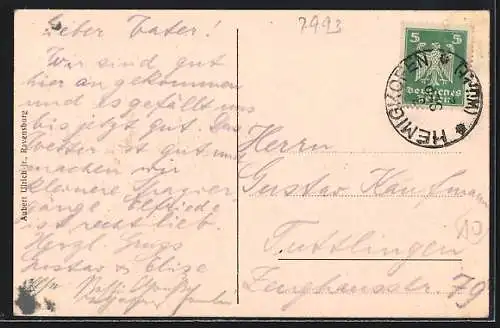 Lieber Vater!
Wir sind gut
hier angekommen
und es gefällt uns
bis jetzt gut. Das
Wetter ist gut und
machen wir
kleinere Spazier
gänge. Elfriede
ist recht lieb.
Herzl. Gruss
Gustav & Elise
Aubert Ulrich jr., Ravensburg
7993
5 5
Deutsches
Reich
HEMIGKOFEN (WÜRTTM)
Herrn
Gustav Kaufmann
Tuttlingen
Zeughausstr. 79
10